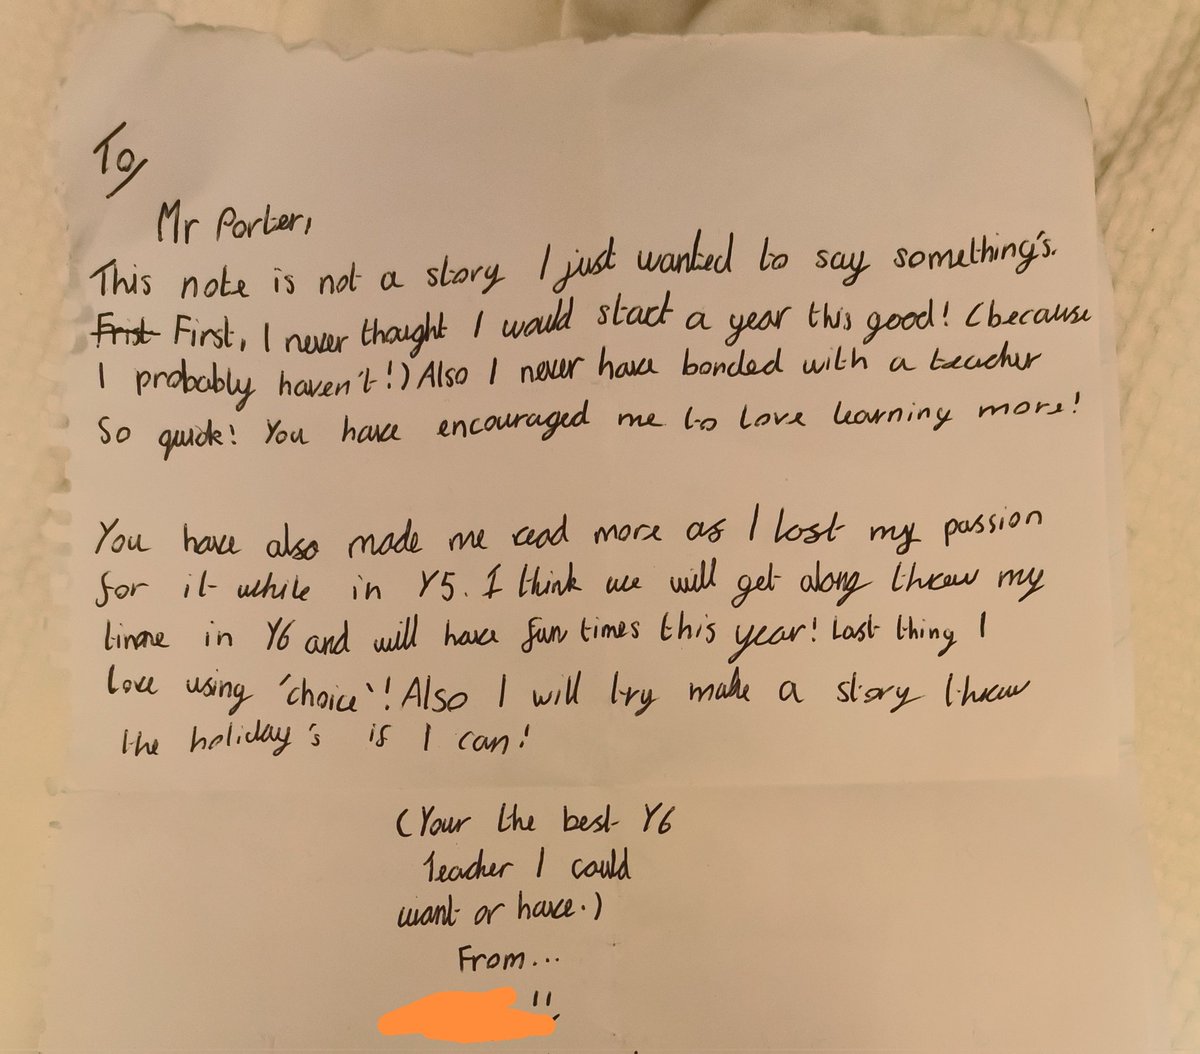 To,
Mr Porter,
This note is not a story I just wanted to say something's.
Frist First, I never thought I would start a year this good! (because
I probably haven't!) Also I never have bonded with a teacher
So quick! You have encouraged me to love learning more!
You have also made me read more as I lost my passion
for it while in Y5. I think we will get along threw my
time in Y6 and will have fun times this year! Last thing I
love using 'choice'! Also I will try make a story threw
the holiday's if I can!
(Your the best Y6
teacher I could
want or have.)
From...